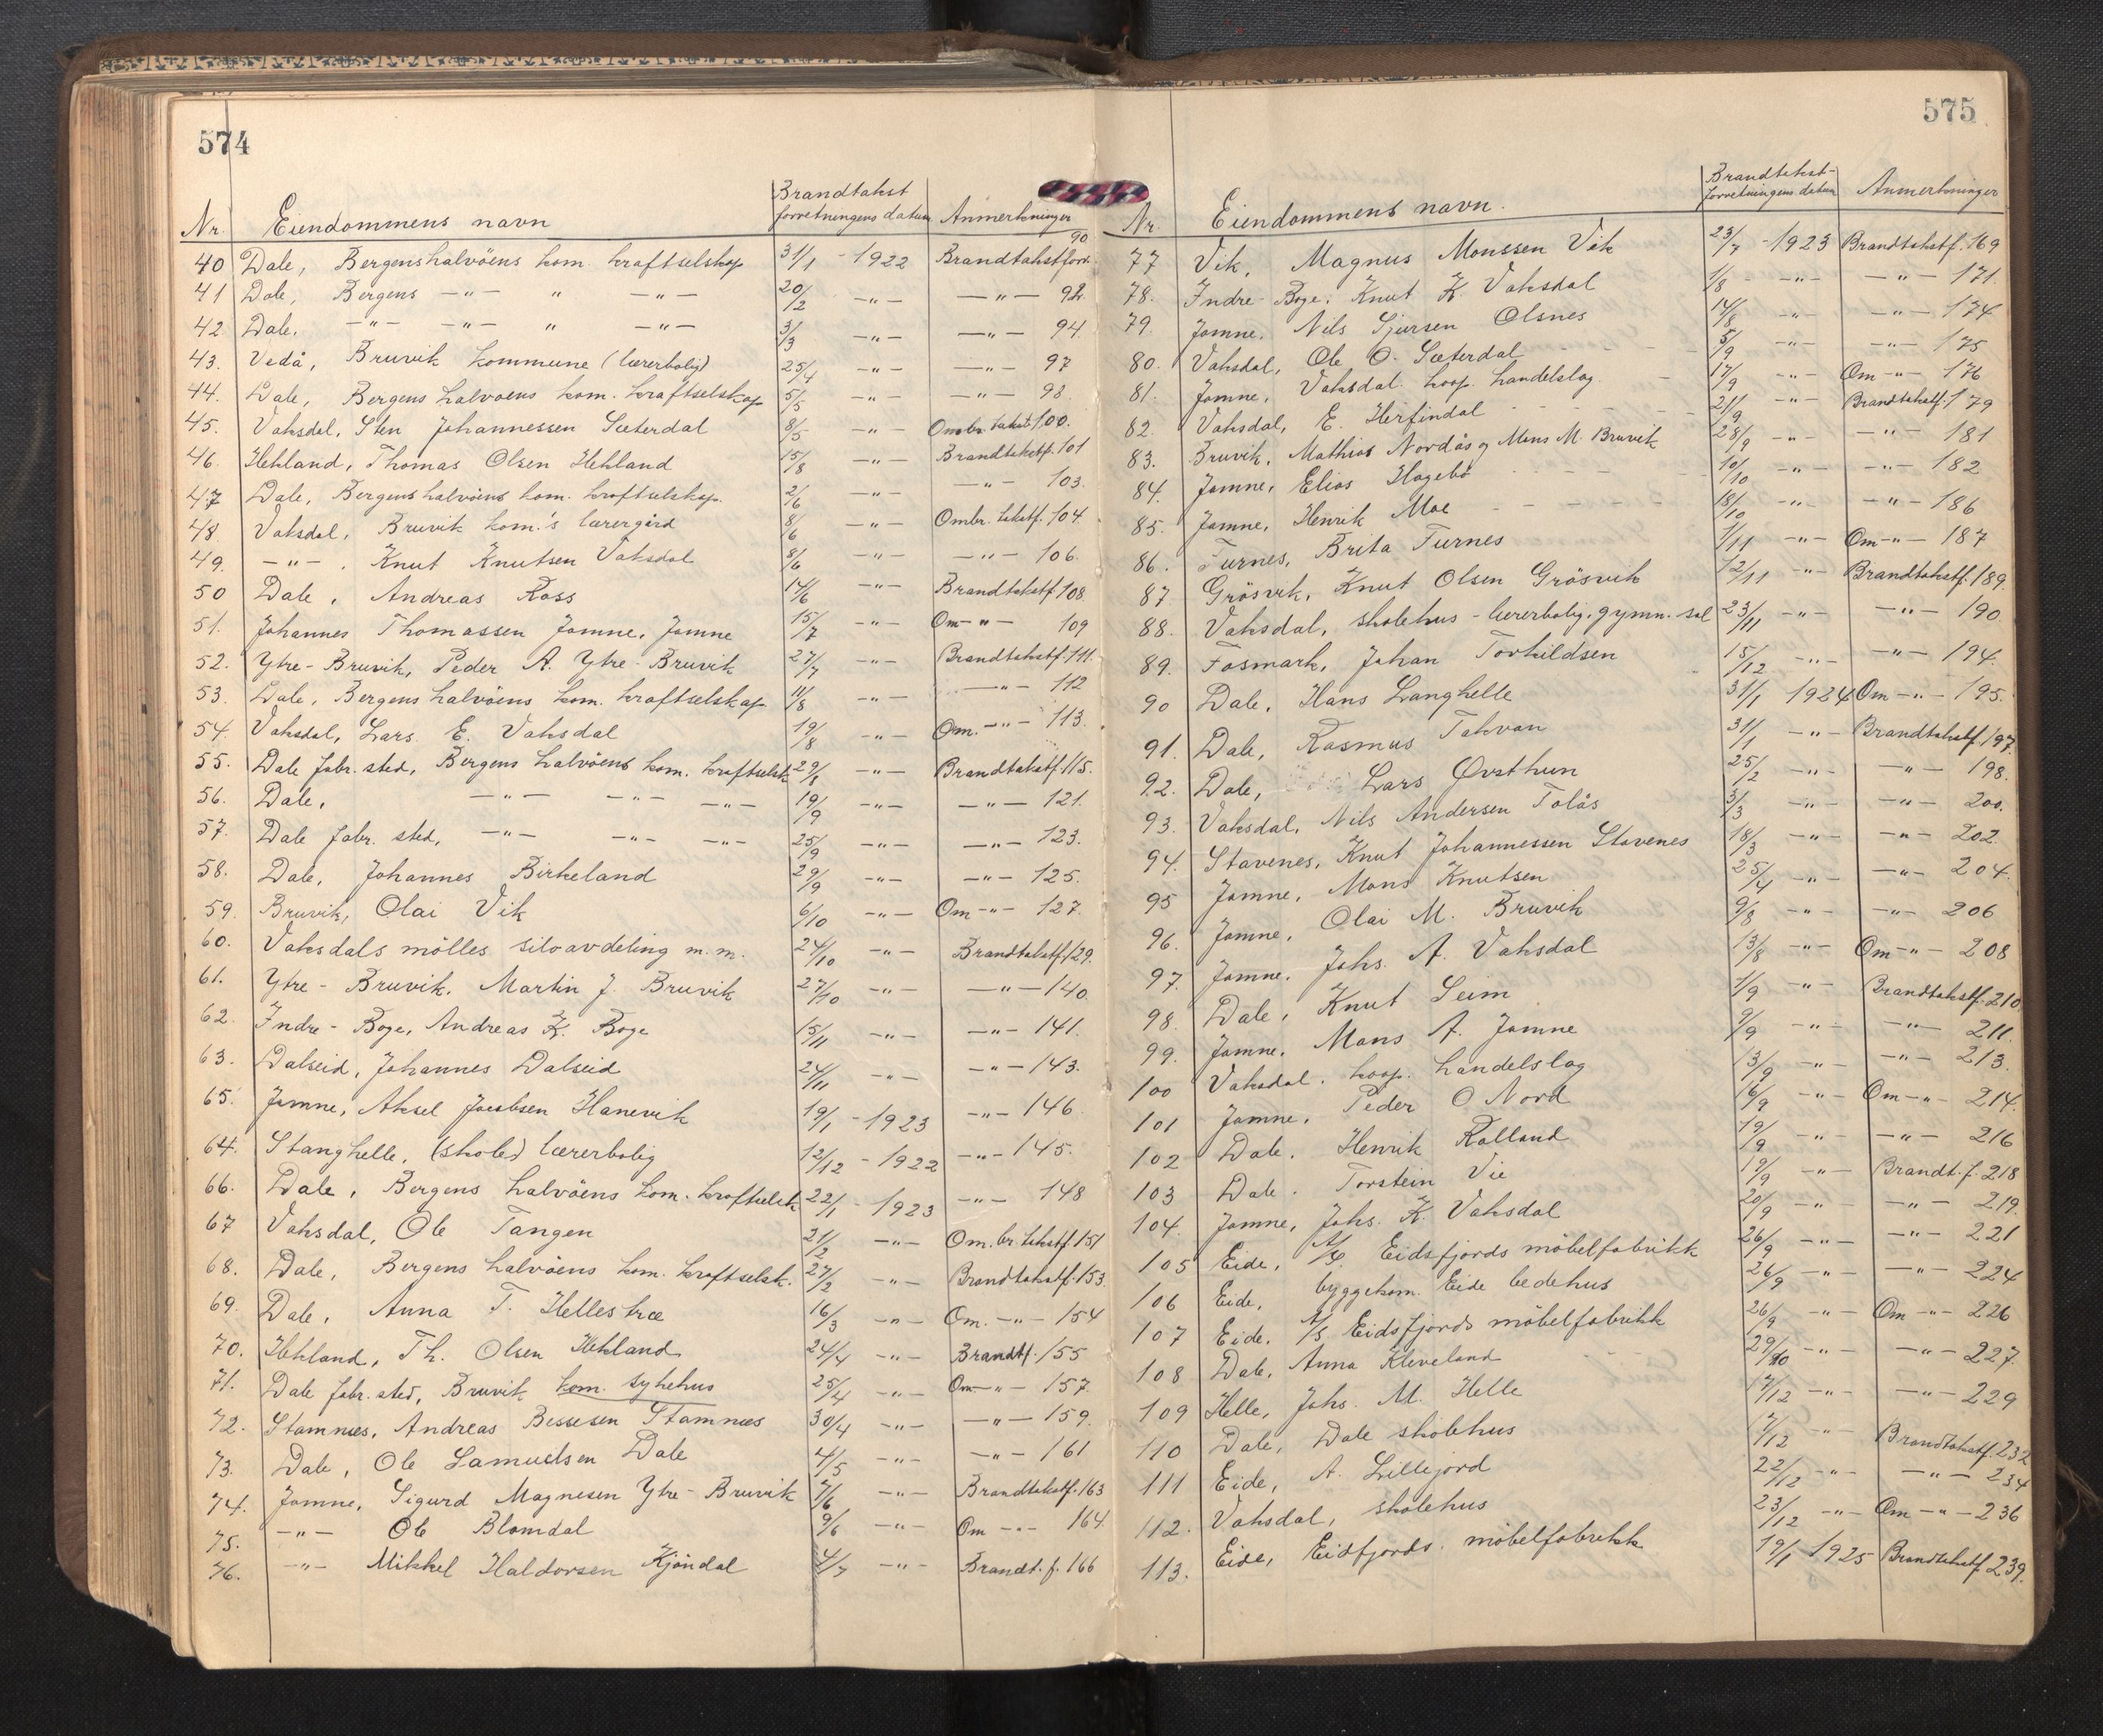 574
Nr. Eiendommens navn Brandtakst forretningens datum Anmerkninger
40 Dale, Bergenshalvöens kom. kraftselskap 31/1 - 1922 Brandtakstforr. 90
41 Dale, Bergens —"— " —"— 20/2 —"— —"— 92
42 Dale. —"— —"— " —"— 3/3 —"— —"— 94
43. Vedå, Bruvik kommune (lærerbolig) 25/4 —"— —"— 97
44. Dale, Bergens halvöens kom. kraftselskap 5/5 —"— —"— 98
45. Vaksdal, Sten Johannessen Sæterdal 8/5 —"— Ombr. takst 100.
46. Hekland, Thomas Olsen Hekland 15/8 —"— Brandtakstf. 101
47 Dale, Bergens halvöens kom. kraftselskap. 2/6 —"— —"— 103.
48. Vaksdal, Bruvik kom.'s lærergård 8/6 —"— Ombr. takstf. 104.
49. —"— . Knut Knutsen Vaksdal 8/6 —"— —"— 106.
50 Dale, Andreas Ross 14/6 —"— Brandtakstf. 108
51. Johannes Thomassen Jamne, Jamne 15/7 —"— Om —"— 109
52. Ytre-Bruvik, Peder A. Ytre-Bruvik 27/7 —"— Brandtakstf. 111.
53. Dale, Bergens halvöens kom. kraftselskap 11/8 —"— —"— 112
54. Vaksdal, Lars E. Vaksdal 19/8 —"— Om. —"— 113.
55. Dale fabr. sted, Bergens halvöens kom. kraftselsk. 29/8 —"— Brandtakstf. 115.
56. Dale, —"— —"— —"— 19/9 —"— —"— 121.
57. Dale fabr. sted, —"— —"— —"— 25/9 —"— —"— 123.
58. Dale, Johannes Birkeland 29/9 —"— —"— 125.
59. Bruvik, Olai Vik 6/10 —"— Om —"— 127.
60. Vaksdals mölles siloavdeling m.m. 24/10 —"— Brandtakstf. 129.
61. Ytre - Bruvik. Martin J. Bruvik 27/10 —"— —"— 140.
62. Indre - Boge, Andreas K. Boge 15/11 —"— —"— 141.
63. Dalseid, Johannes Dalseid 24/11 —"— —"— 143.
65. Jamne, Aksel Jacobsen Hanevik 19/1 - 1923 —"— 146.
64. Stanghelle, (skole) lærerbolig 12/12 - 1922 —"— 145.
66. Dale, Bergens halvöens kom. kraftselsk. 22/1 - 1923 —"— 148
67 Vaksdal, Ole Tangen 21/2 —"— Om. br. takstf. 151
68. Dale, Bergens halvöens kom. kraftselsk. 27/2 —"— Brandtakstf. 153
69. Dale, Anna T. Hellestræ 16/3 —"— Om. —"— 154
70. Hekland, Th. Olsen Hekland 24/4 —"— Brandtf. 155
71. Dale fabr. sted, Bruvik kom. sykehus 25/4 —"— Om —"— 157.
72. Stamnes, Andreas Bessesen Stamnes 30/4 —"— —"— 159.
73. Dale, Ole Samuelsen Dale 4/5 —"— —"— 161
74. Jamne, Sigurd Magnesen Ytre-Bruvik 7/6 —"— Brandtakstf. 163
75. —"— Ole Blomdal 9/6 —"— Om —"— 164.
76. —"— Mikkel Haldorsen Kjöndal 4/7 —"— Brandt.f. 166
575
Nr. Eiendommens navn. Brandtakst- forretningens datum Anmerkninger
77 Vik, Magnus Monssen Vik 23/7 - 1923 Brandtakstf. 169
78. Indre-Boge, Knut K. Vaksdal 1/8 —"— —"— 171.
79. Jamne. Nils Sjursen Olsnes 14/8 —"— —"— 174
80. Vaksdal, Ole O. Sæterdal 5/9 —"— —"— 175
81. Jamne, Vaksdal koop. handelslag 17/9 —"— Om —"— 176
82. Vaksdal, E. Herfindal 21/9 —"— Brandtakstf. 179
83. Bruvik, Mathias Nordås og Mons M. Bruvik 28/9 —"— —"— 181
84. Jamne, Elias Hagebö 10/10 —"— —"— 182
85. Jamne, Henrik Moe 18/10 —"— —"— 186
86. Turnes, Brita Turnes 1/11 —"— Om —"— 187
87 Grösvik, Knut Olsen Grösvik 12/11 —"— Brandtakstf. 189.
88. Vaksdal, skolehus - lærerbolig, gymn. sal 23/11 —"— —"— 190
89. Fosmark, Johan Torkildsen 15/12 —"— —"— 194.
90 Dale, Hans Langhelle 31/1 1924 Om —"— 195.
91. Dale, Rasmus Takvam 31/1 —"— Brandtakstf. 197.
92. Dale, Lars Øvsthun 25/2 —"— —"— 198.
93. Vaksdal, Nils Andersen Tolås 3/3 —"— —"— 200.
94. Stavenes, Knut Johannessen Stavenes 18/3 —"— —"— 202.
95 Jamne, Mons Knutsen 25/4 —"— —"— 204.
96. Jamne, Olai M. Bruvik 9/8 —"— —"— 206
97. Jamne. Johs. A. Vaksdal 13/8 —"— Om —"— 208
98. Dale, Knut Seim 1/9 —"— Brandtakstf. 210.
99. Jamne. Mons A. Jamne 9/9 —"— —"— 211.
100 Vaksdal. koop. handelslag 13/9 —"— —"— 213.
101 Jamne, Peder O Nord 16/9 —"— Om —"— 214.
102 Dale. Henrik Kalland 19/9 —"— —"— 216
103 Dale. Torstein Vie 19/9 —"— Brandt.f. 218
104. Jamne, Johs. K. Vaksdal 20/9 —"— —"— 219.
105 Eide, A/S. Eidsfjords möbelfabrikk 26/9 —"— —"— 221
106 Eide, byggekom. Eide bedehus 26/9 —"— —"— 224
107 Eide. A/S Eidsfjords möbelfabrikk 26/9 —"— Om —"— 226
108 Dale, Anna Kleveland 29/10 —"— —"— 227.
109 Helle, Johs. M. Helle 17/12 —"— —"— 229
110 Dale, Dale skolehus 17/12 —"— Brandtakstf. 232
111 Eide, A. Lillejord 22/12 —"— —"— 234
112. Vaksdal, skolehus 23/12 —"— Om —"— 236
113. Eide, Eidfjords. möbelfabrikk 19/1 1925 Brandtakstf. 239.